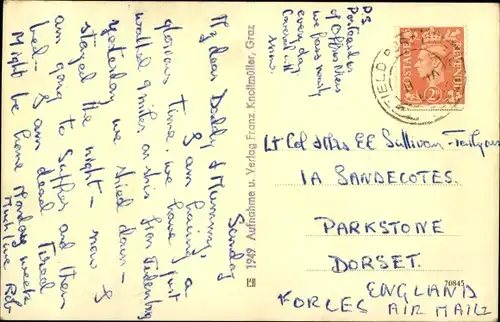 Sunday
My dear Daddy & Mummy,
I am having a
glorious time. We have just
walked 9 miles on skis from
yesterday we skied down -
stayed the night - now I
am going to Supper and then
bed - I am dead tired
Might be home Monday week
Much love Rob
P.S.
Postcard is
of
we pass nearly
every day
1949 Aufnahme u. Verlag Franz Knollmüller, Graz
FIELD
POSTAGE
2D
Lt Col & Mrs EC Sullivan-Tailyour
1A SANDECOTES.
PARKSTONE
DORSET.
ENGLAND
FORCES AIR MAIL
70845